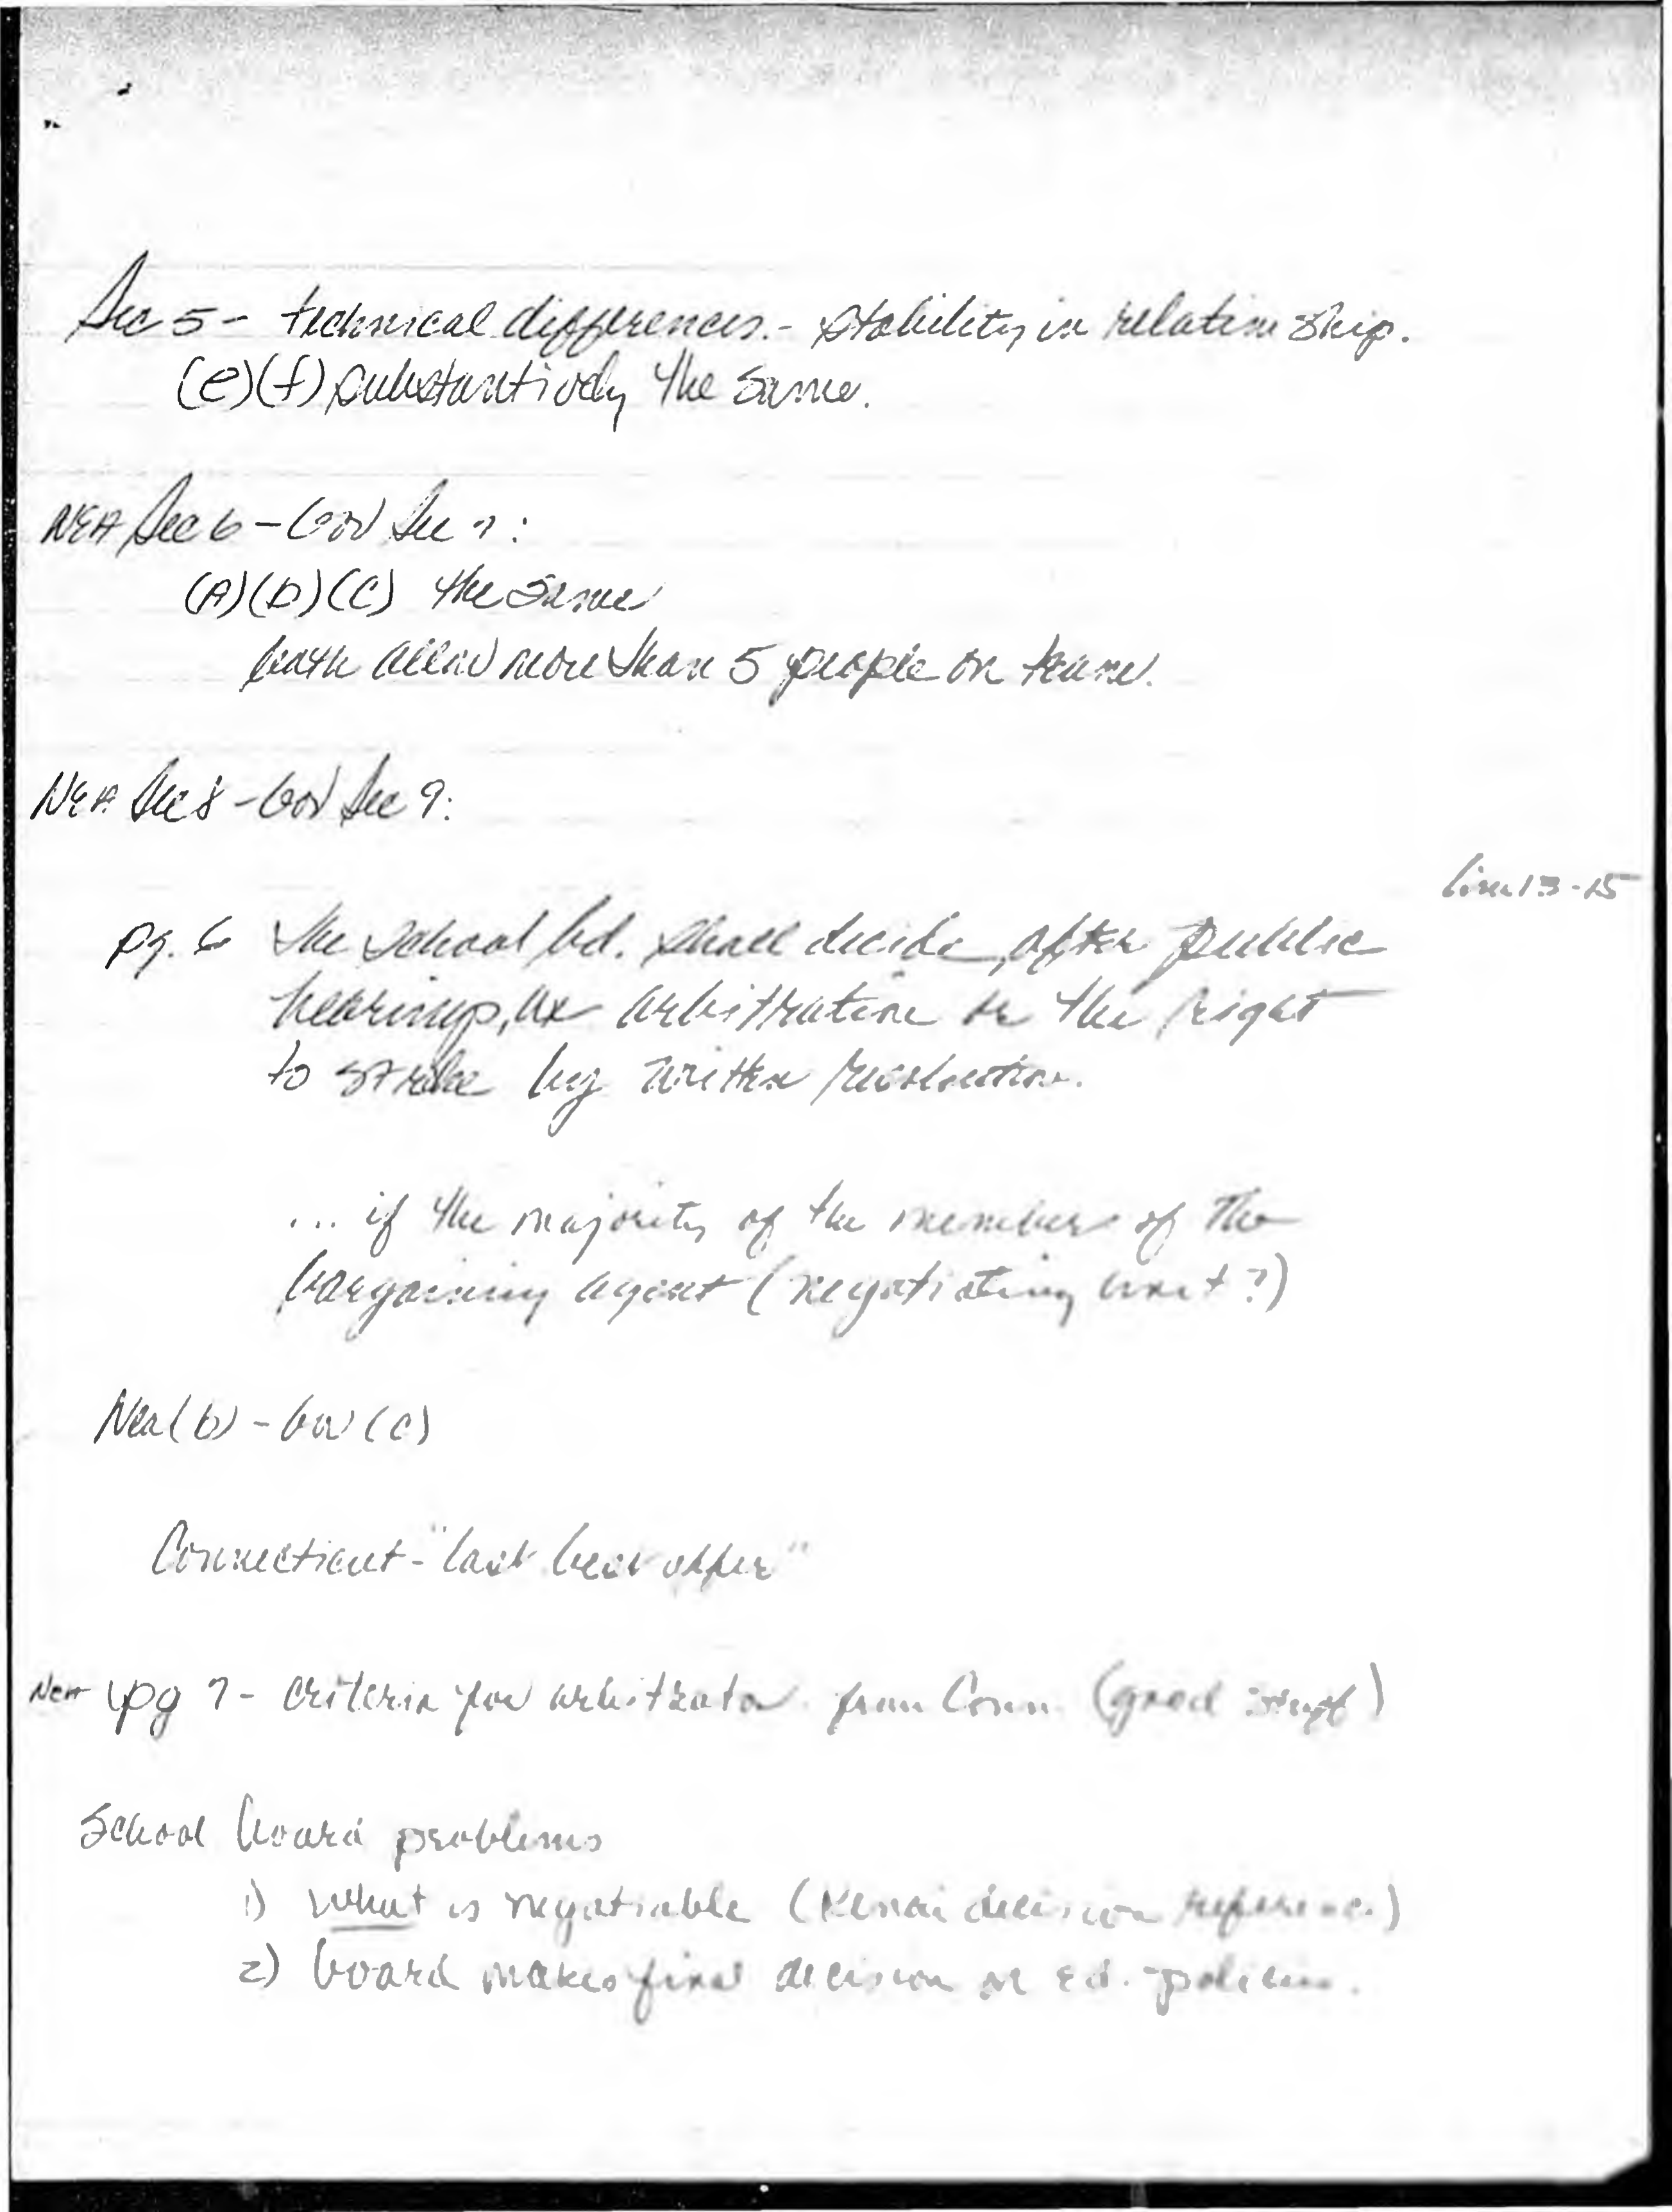 Sec 5 - technical differences. - stability in relationship.
(e)(f) substantively the same.
NEA Sec 6 - Gov Sec 7:
(A)(b)(c) the same
both allow more than 5 people on team.
NEA Sec 8 - Gov Sec 9:
line 13-15
pg. 6 the school bd. shall decide, after public
hearings, arbitration or the right
to strike by written resolution.
... if the majority of the members of the
bargaining agent (negotiating unit?)
Nea (b) - Gov (c)
Connecticut - "last best offer"
Nea pg 7 - criteria for arbitrator from Conn. (good stuff)
School board problems
1) what is negotiable (Kenai decision reference)
2) board makes final decision on ed. policies.